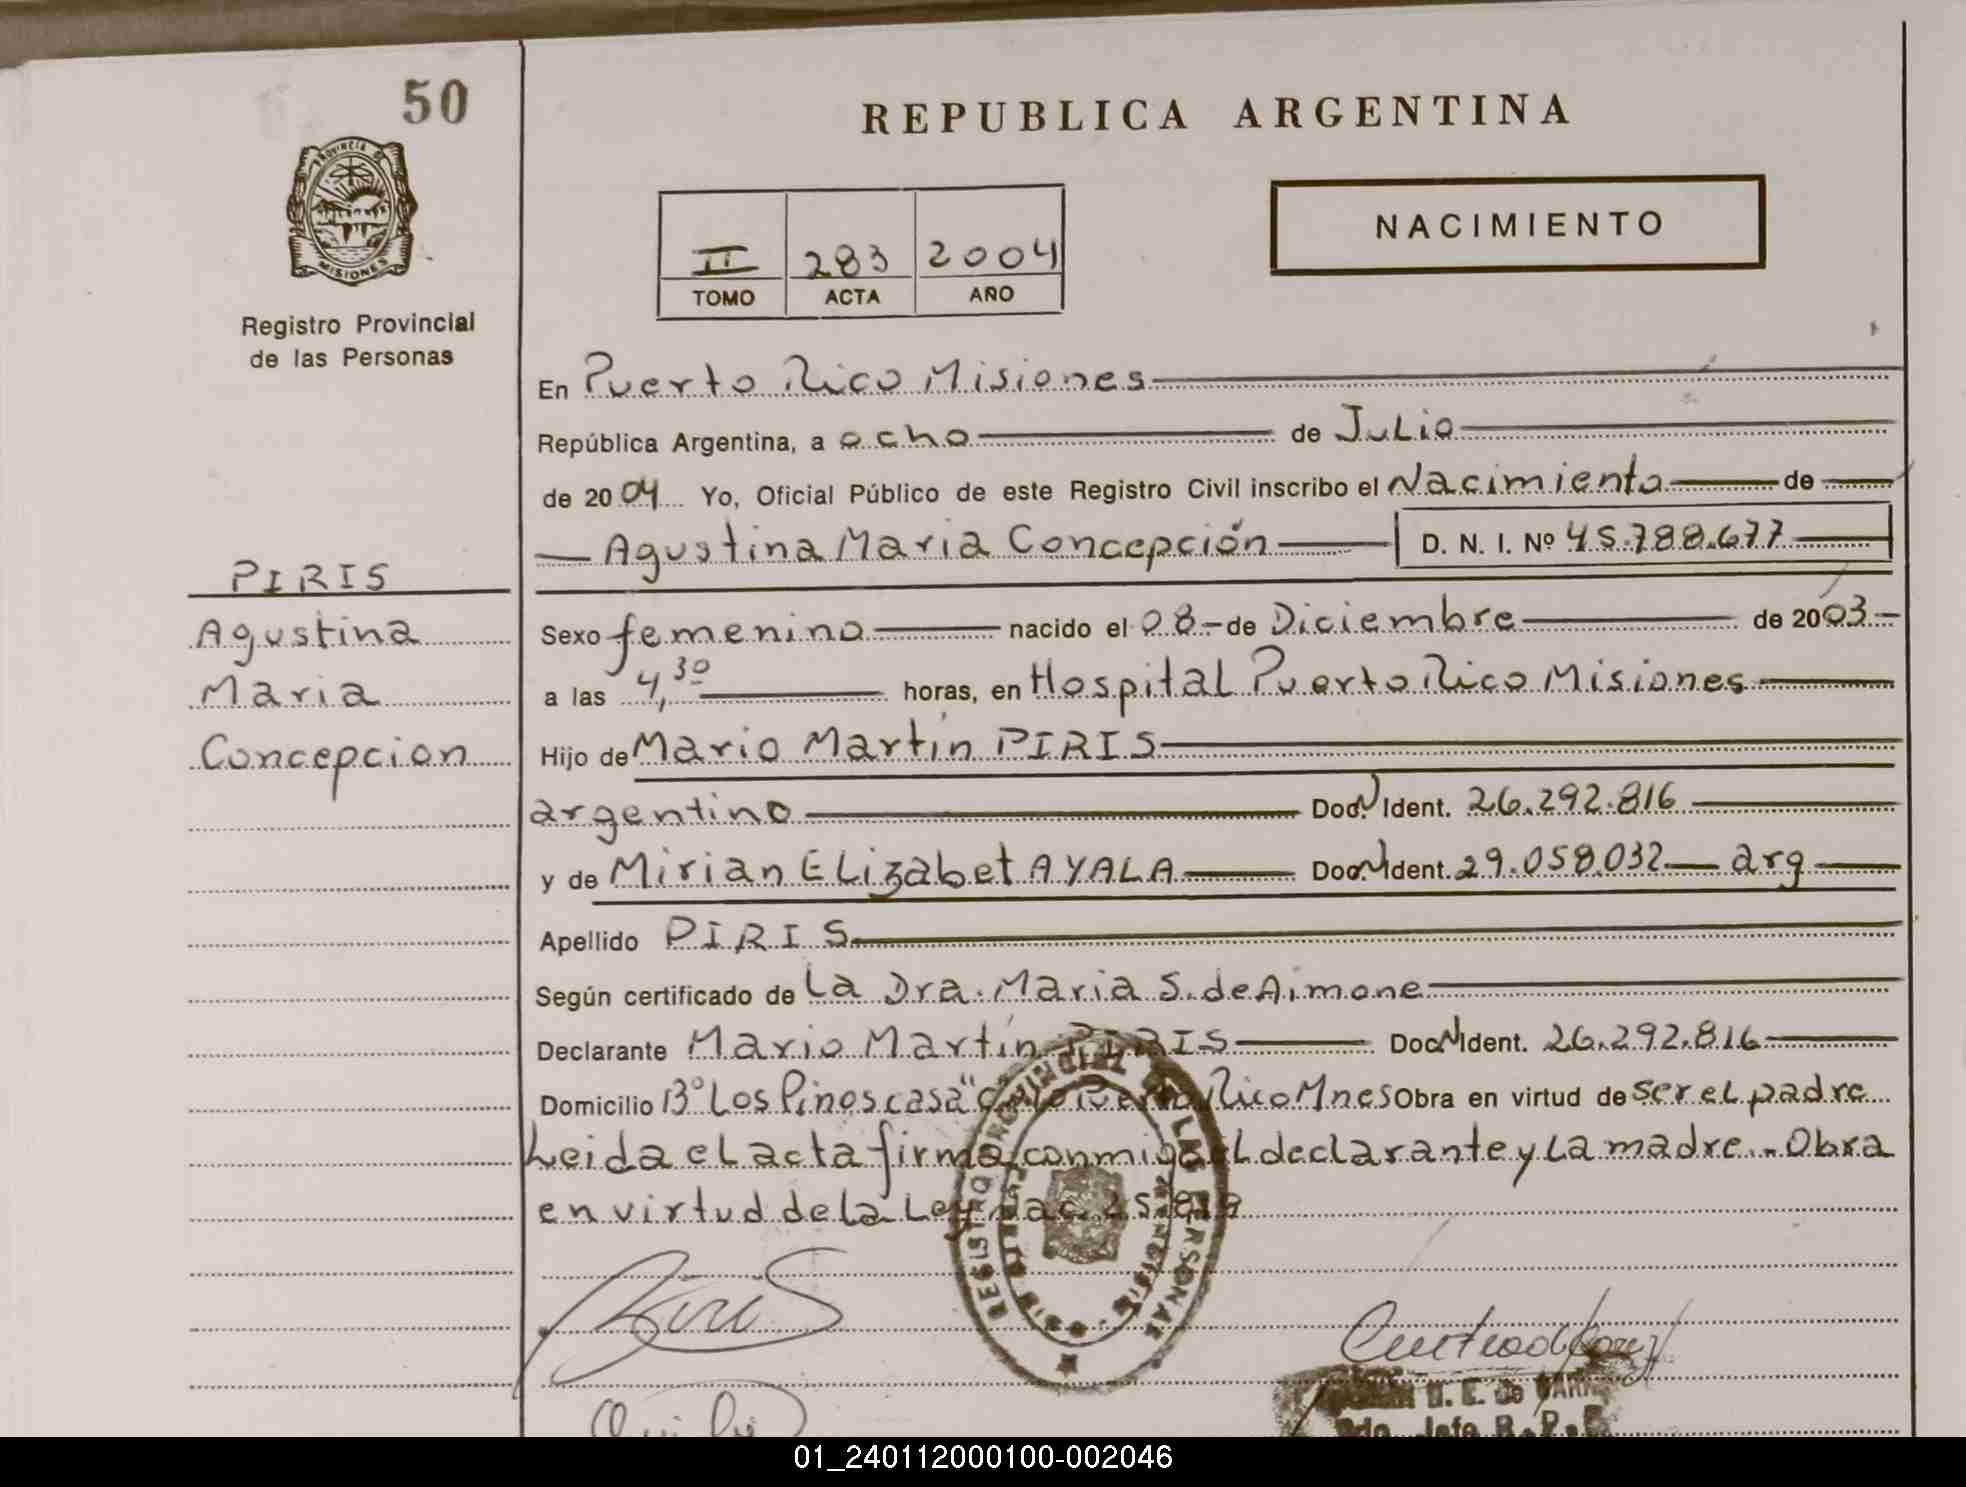 50
REPUBLICA ARGENTINA
PROVINCIA DE
MISIONES
Registro Provincial
de las Personas
NACIMIENTO
II 283 2004
TOMO ACTA AÑO
En Puerto Rico Misiones
República Argentina, a ocho de Julio
de 2004 Yo, Oficial Público de este Registro Civil inscribo el Nacimiento de
Agustina Maria Concepción D. N. I. Nº 45.788.677
PIRIS
Agustina
Maria
Concepcion
Sexo femenino nacido el 08 de Diciembre de 2003
a las 4,30 horas, en Hospital Puerto Rico Misiones
Hijo de Mario Martín PIRIS
argentino Doc. Ident. 26.292.816
y de Mirian Elizabet AYALA Doc. Ident. 29.058.032 arg
Apellido PIRIS
Según certificado de La Dra. Maria S. de Aimone
Declarante Mario Martín PIRIS Doc. Ident. 26.292.816
Domicilio Bº Los Pinos casa Puerto Rico Mnes Obra en virtud de ser el padre
Leida el acta firma conmigo el declarante y la madre.. Obra
en virtud de la Ley
REGISTRO PROVINCIAL DE LAS PERSONAS
Piris
01_240112000100-002046